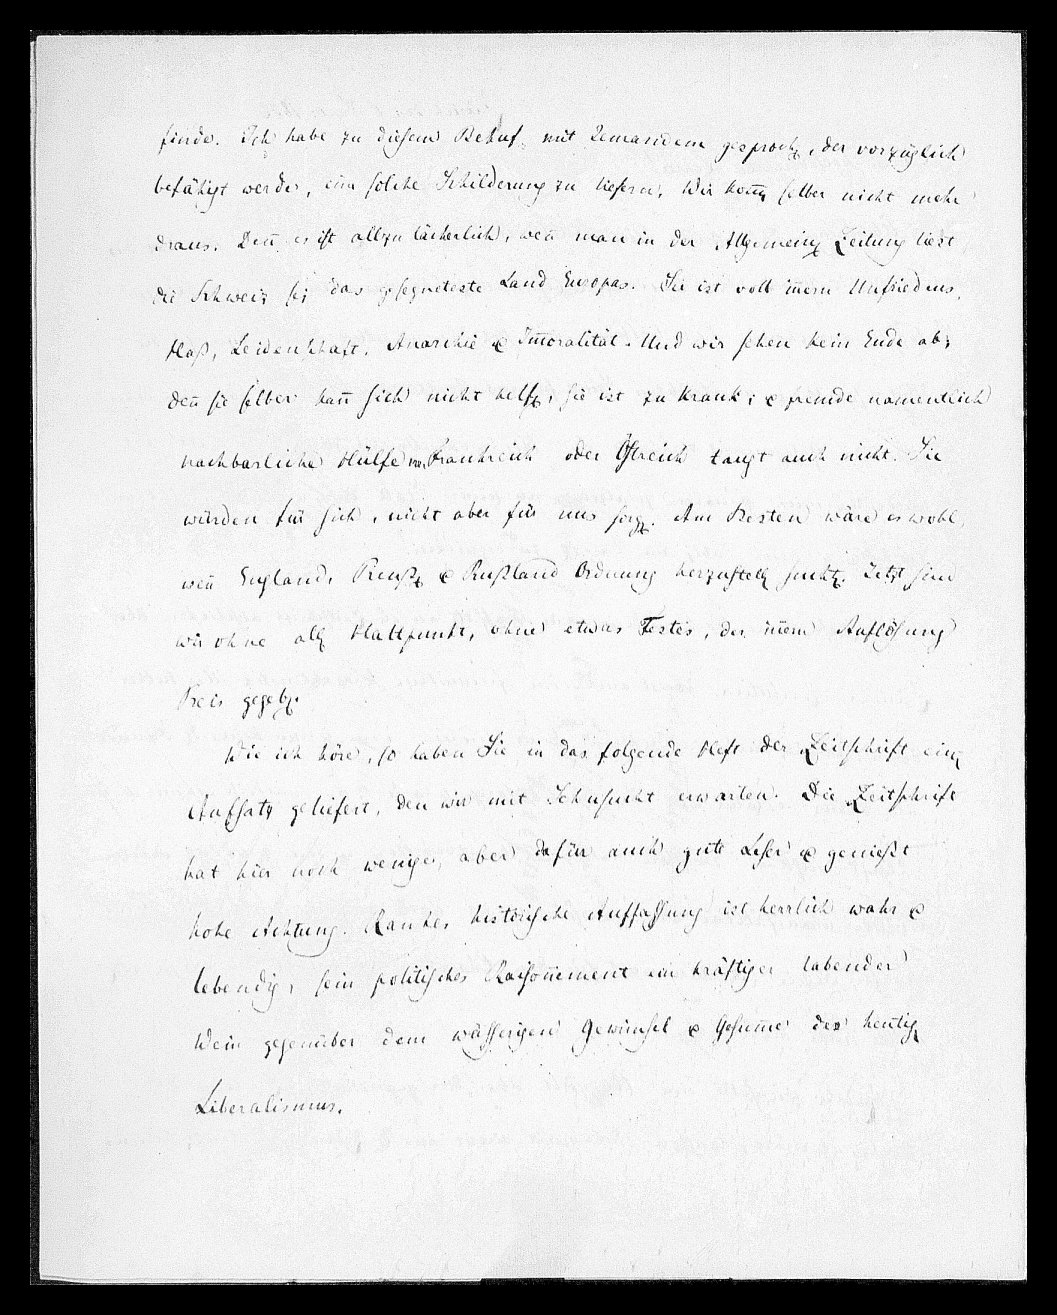 finde. Ich habe zu diesem Behuf, mit Jemandem gesproch, der vorzüglich
befähigt werde, eine solche Schilderung zu liefern. Wir kom̅ selber nicht mehr
draus. Den̅ es ist allzu lächerlich, wen̅ man in der Allgemein Zeitung liest
die Schweiz sei das gesegneteste Land Europas. Sie ist voll in̅ern Unfriedens,
Haß, Leidenschaft, Anarchie & Im̅oralität. Und wir sehen kein Ende ab;
den̅ sie selber kan̅ sich nicht helf, sie ist zu krank; & fremde namentlich
nachbarliche Hülfe von Frankreich oder Östreich taugt auch nicht. Sie
würden für sich, nicht aber für uns sorg. Am Besten wäre es wohl,
wen̅ England, Preuß & Rußland Ordnung herzustell such. Jetzt sind
wir ohne all Haltpunkt, ohne etwas Festes, der in̅ern Auflösung
Preis gegeb.
Wie ich höre, so haben Sie in das folgende Heft der Zeitschrift ein
Aufsatz geliefert, den wir mit Sehnsucht erwarten. Die Zeitschrift
hat hier noch wenige, aber dafür auch gute Leser & genießt
hohe Achtung. Rankes historische Auffassung ist herrlich wahr &
lebendig, sein politisches Raison̅ement ein kräftiger labender
Wein gegenüber dem wässerigen Gewinsel & Gesum̅e des heutig
Liberalismus.